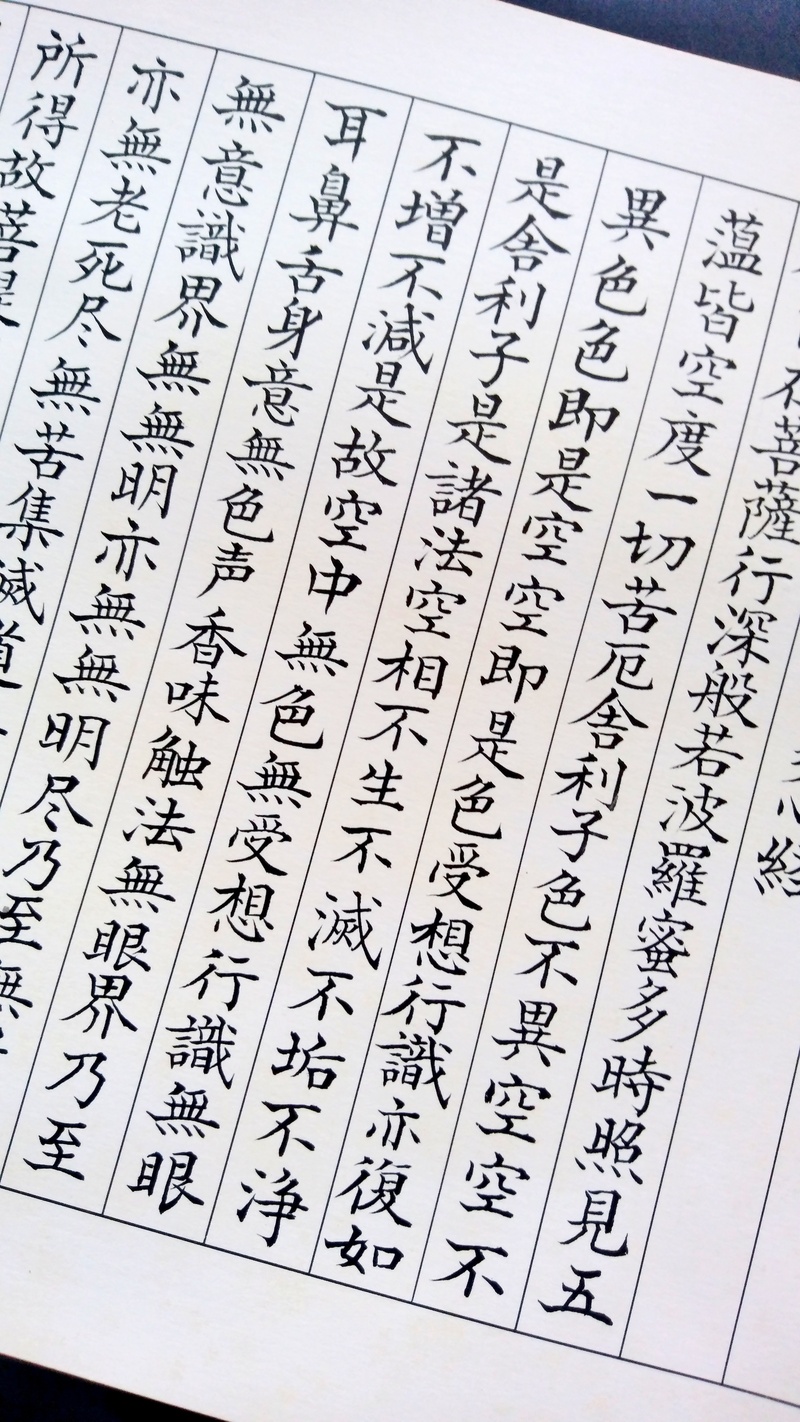 心経
菩薩行深般若波羅蜜多時照見五
蘊皆空度一切苦厄舎利子色不異空空不
異色色即是空空即是色受想行識亦復如
是舎利子是諸法空相不生不滅不垢不浄
不増不減是故空中無色無受想行識無眼
耳鼻舌身意無色声香味触法無眼界乃至
無意識界無無明亦無無明尽乃至無
亦無老死尽無苦集滅道
所得故菩提